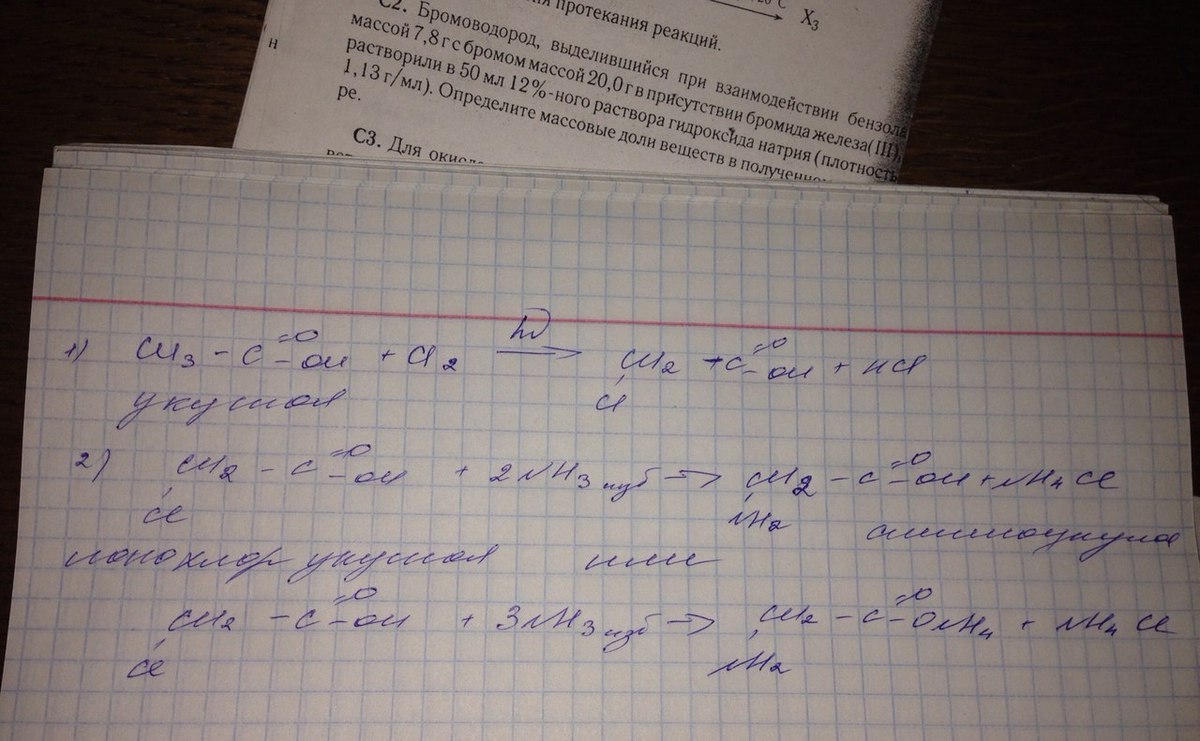 20°C X₃
ия протекания реакций.
С2. Бромоводород, выделившийся при взаимодействии бензола
массой 7,8 г с бромом массой 20,0 г в присутствии бромида железа(III),
растворили в 50 мл 12%-ного раствора гидроксида натрия (плотность
1,13 г/мл). Определите массовые доли веществ в полученном
ре.
н
С3. Для окисле
1) CH₃ - C =O -OH + Cl₂ hν → CH₂ + C =O -OH + HCl
Cl
укусная
2) CH₂ - C =O -OH + 2NH₃ изб → CH₂ - C =O -OH + NH₄Cl
Cl NH₂ аминоукусная
монохлор укусная или
CH₂ - C =O -OH + 3NH₃ изб → CH₂ - C =O -ONH₄ + NH₄Cl
Cl NH₂